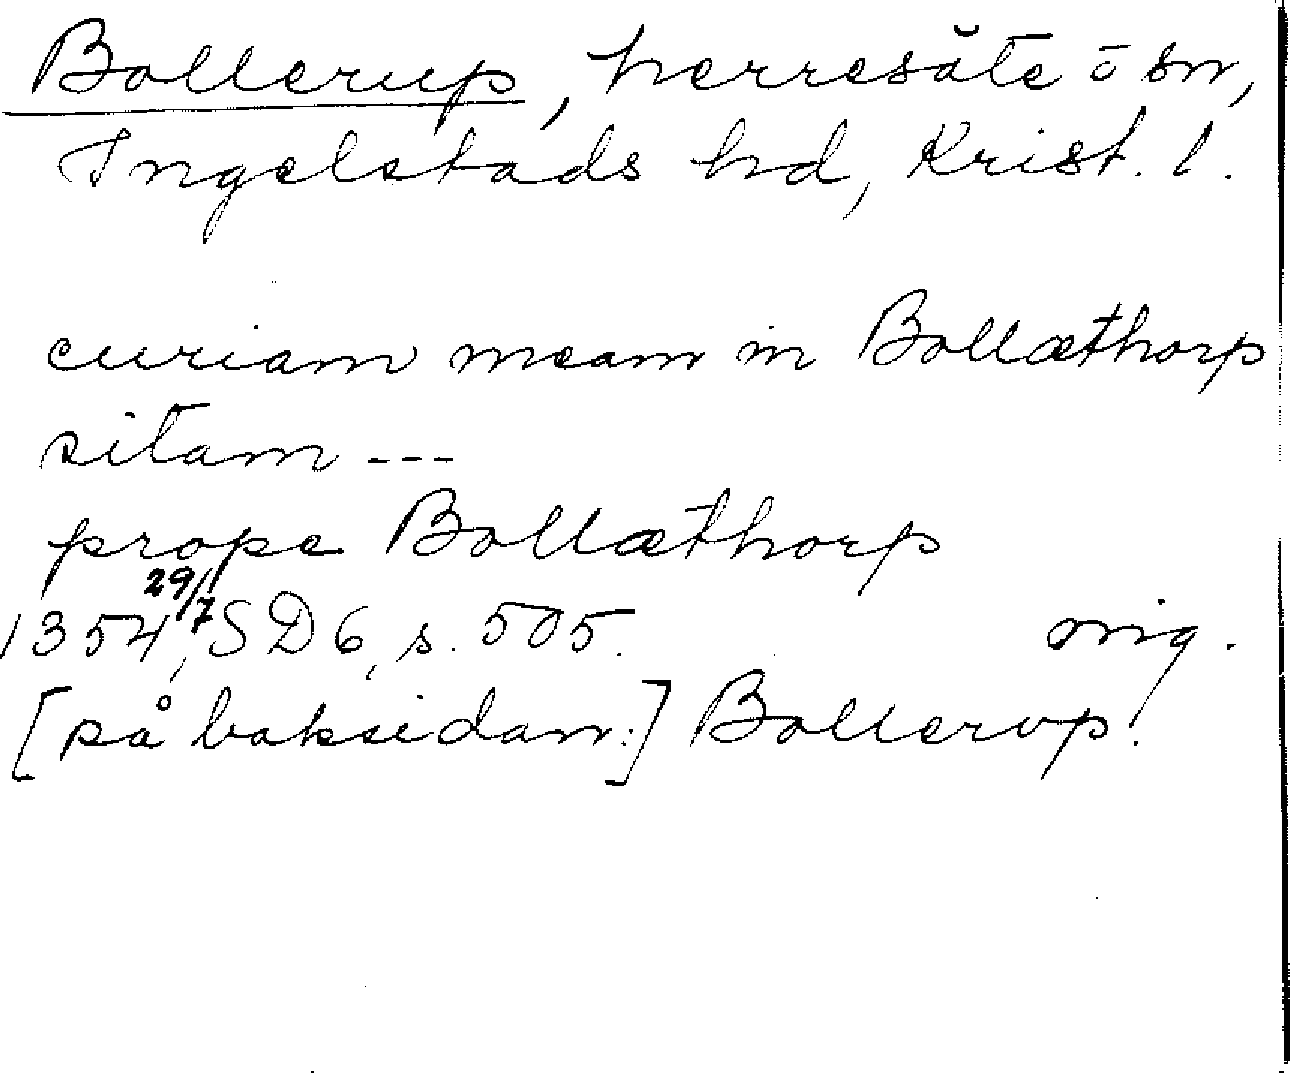 Bollerup, herresäte o sn,
Ingelstads hd, Krist. l.
curiam meam in Bollæthorp
sitam ---
prope Bollæthorp
1354 29/7, SD 6, s. 505. orig.
[på baksidan:] Bollerop.